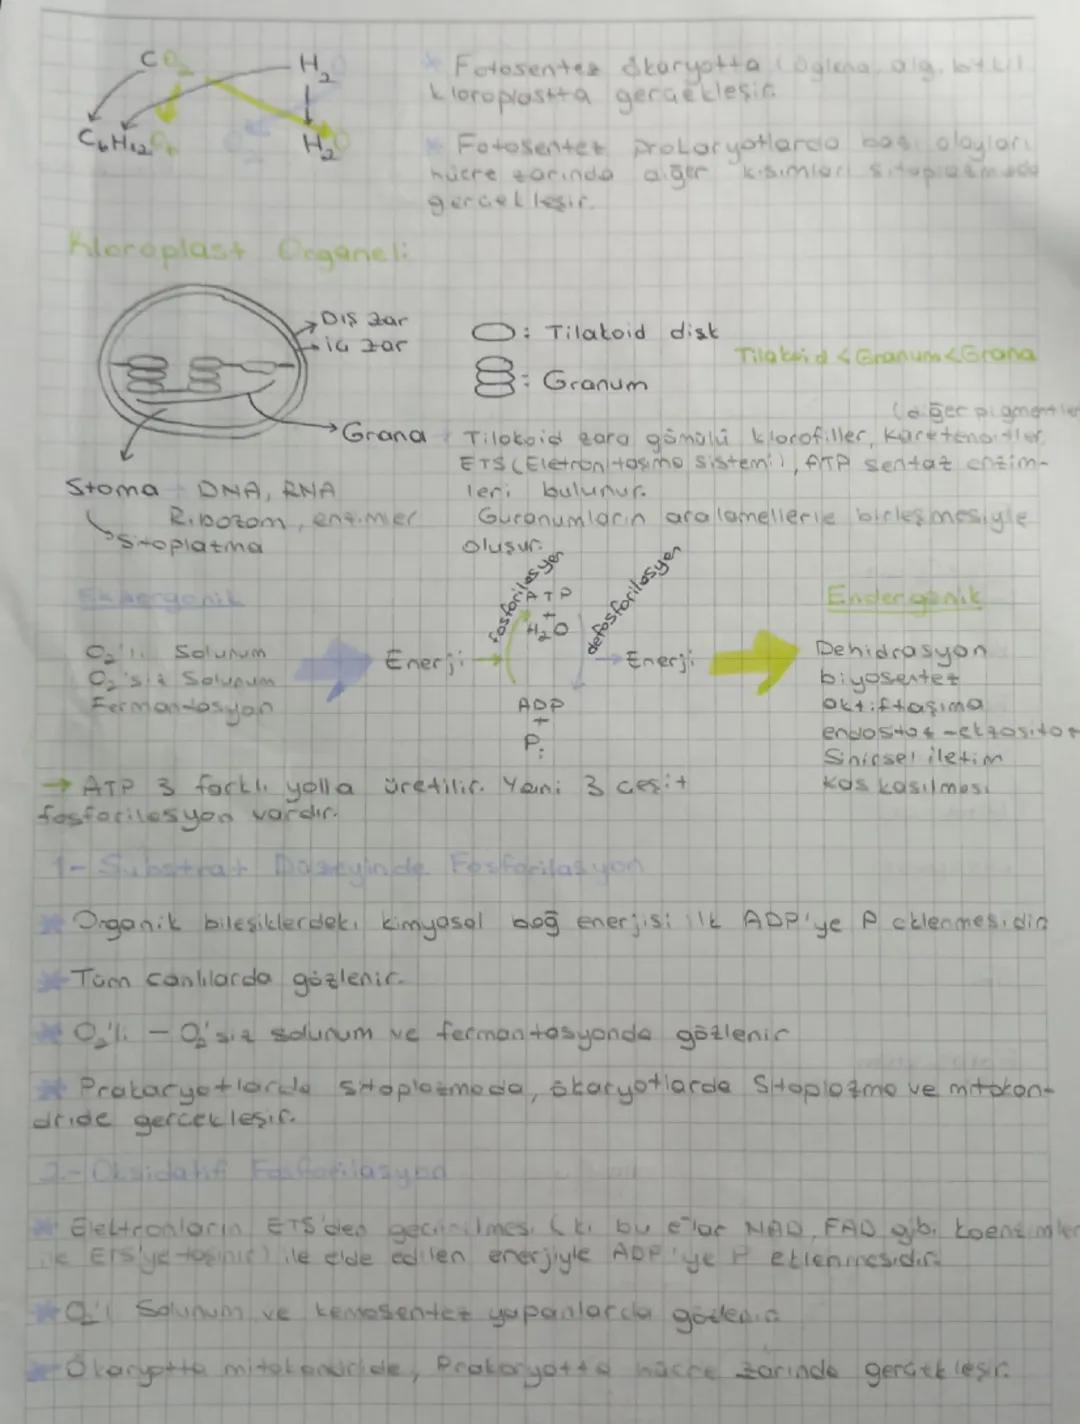 CO₂ H₂O
C₆H₁₂O₆ O₂ H₂O
* Fotosentez ökaryotta (öglena, alg, bitki)
kloroplastta gerçekleşir.
* Fotosentez prokaryotlarda bazı olayları
hücre zarında diğer kısımları sitoplazmada
gerçekleşir.
Kloroplast Organeli:
Dış zar
iç zar
: Tilakoid disk
: Granum
Tilakoid < Granum < Grana
Grana
(diğer pigmentler
Tilokoid zara gömülü klorofiller, karetenoitler,
ETS (Eletron taşıma sistemi), ATP sentaz enzim-
leri bulunur.
Guranumların aralamellerle birleşmesiyle
oluşur.
Stoma DNA, RNA
Ribozom, enzimler
Sitoplatma
Ekzergonik
O₂'li Solunum
O₂'siz Solunum
Fermantasyon
Enerji
fosforilasyon
ATP
+
H₂O
defosforilasyon
ADP
+
Pi
Enerji
Endergonik
Dehidrasyon
biyosentez
aktif taşıma
endositoz - ekzositoz
Sinirsel iletim
Kas kasılması
→ ATP 3 farklı yolla üretilir. Yani 3 çeşit
fosforilasyon vardır.
1- Substrat Düzeyinde Fosforilasyon
* Organik bileşiklerdeki kimyasal bağ enerjisi ilk ADP'ye P eklenmesidir
* Tüm canlılarda gözlenir.
* O₂'li - O₂'siz solunum ve fermantasyonda gözlenir
* Prokaryotlarda sitoplazmada, ökaryotlarda Sitoplazma ve mitokon-
dride gerçekleşir.
2- Oksidatif Fosforilasyon
* Elektronların ETS'den geçirilmesi (ki bu e⁻lar NAD, FAD gibi koenzimler
ile ETS'ye taşınır) ile elde edilen enerjiyle ADP'ye P eklenmesidir.
* O₂'li Solunum ve kemosentez yapanlarda gözlenir
* Ökaryotta mitokondride, Prokaryotta hücre zarında gerçekleşir.